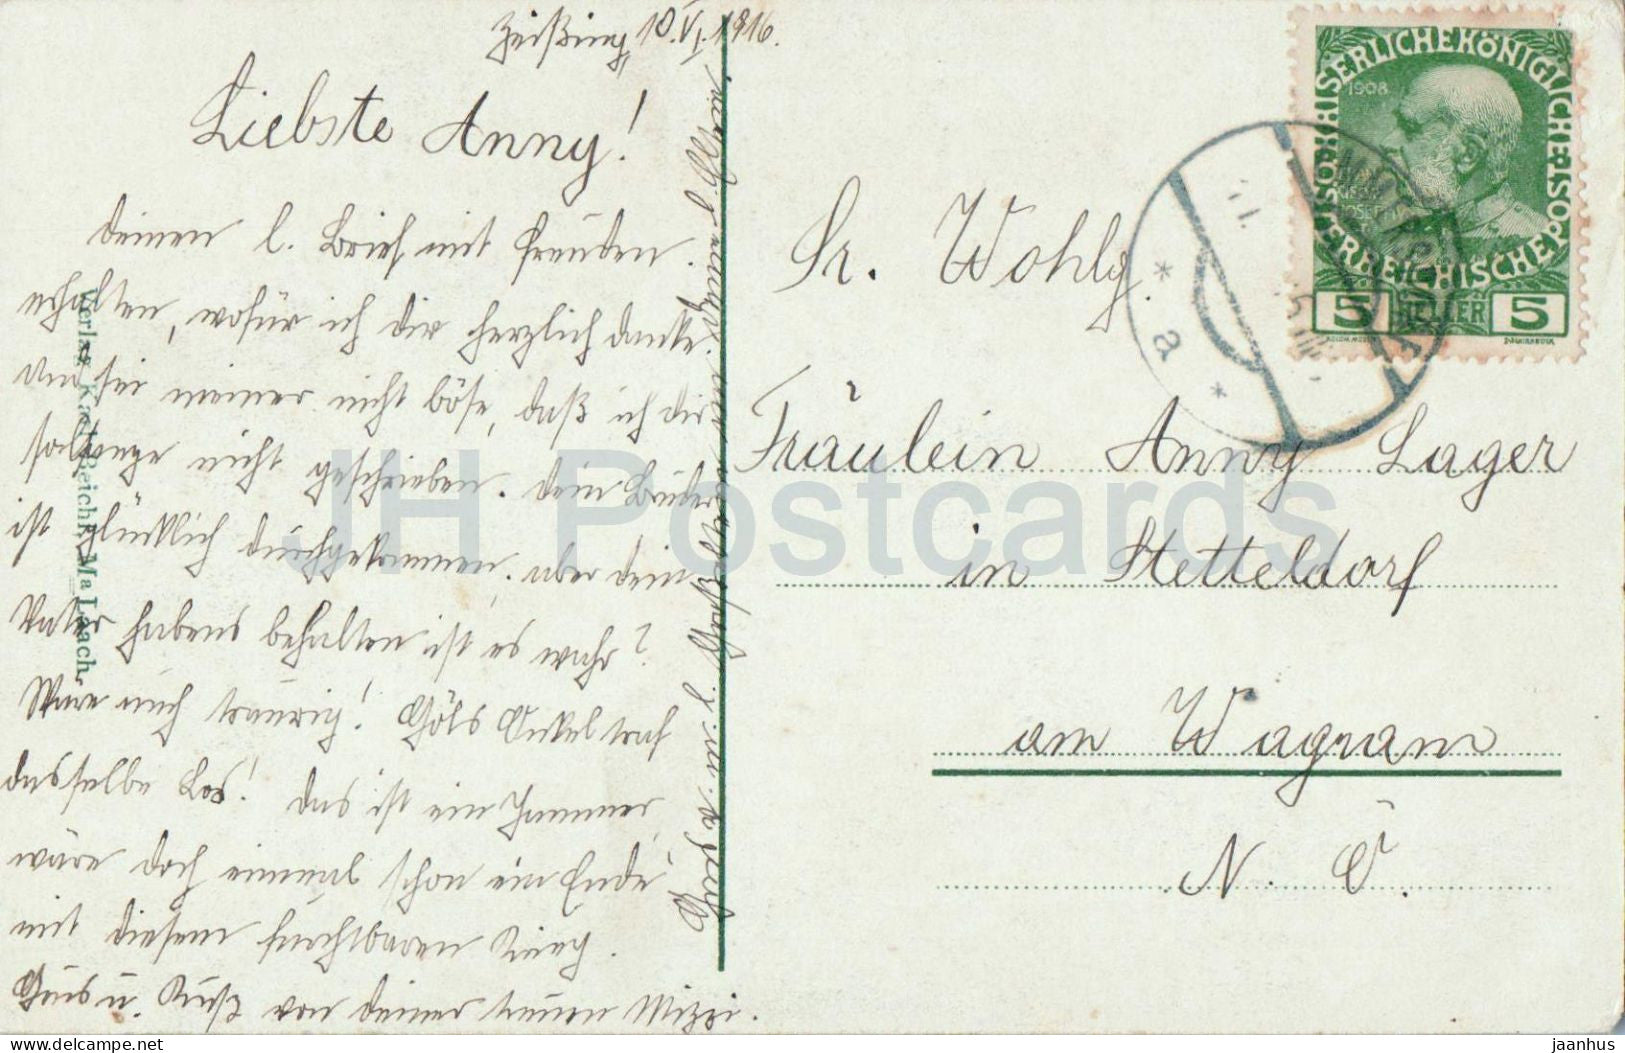 Zeißing, 10. VI. 1916.
Liebste Anny!
Deinen l. Brief mit Freuden
erhalten, wofür ich dir herzlich danke.
sei meiner nicht böse, daß ich dir
solange nicht geschrieben. Dein Bruder
ist glücklich durchgekommen, aber dein
Vater habens behalten ist es wahr?
Wäre mich traurig! Göls Onkel traf
dasselbe Los! Das ist ein Jammer,
wäre doch einmal schon ein Ende
mit diesem furchtbaren Krieg.
Grus u. Kuß von deiner treuen Mizzi.
Verlag Karl Reichl, Ma. Laach.
Sr. Wohlg.
Fräulein Anny Lager
in Stetteldorf
am Wagram
N. Ö.
KAISERLICHE KÖNIGLICHE
ÖSTERREICHISCHE POST
1908
5 HELLER 5
* a *
JH Postcards
delcampe.net
jaanhus